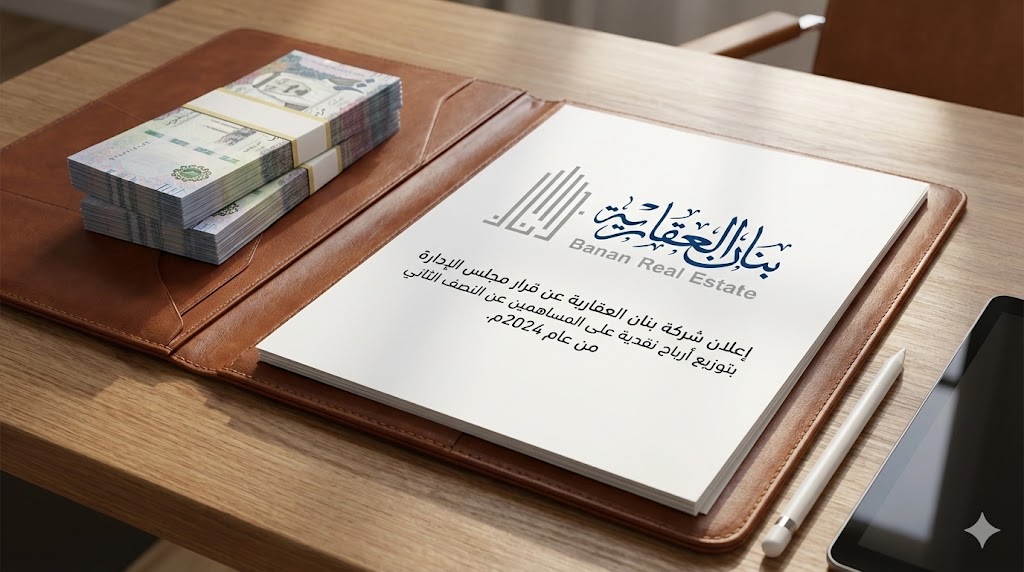 بنان العقارية
Banan Real Estate
إعلان شركة بنان العقارية عن قرار مجلس الإدارة
بتوزيع أرباح نقدية على المساهمين عن النصف الثاني
من عام 2024م.